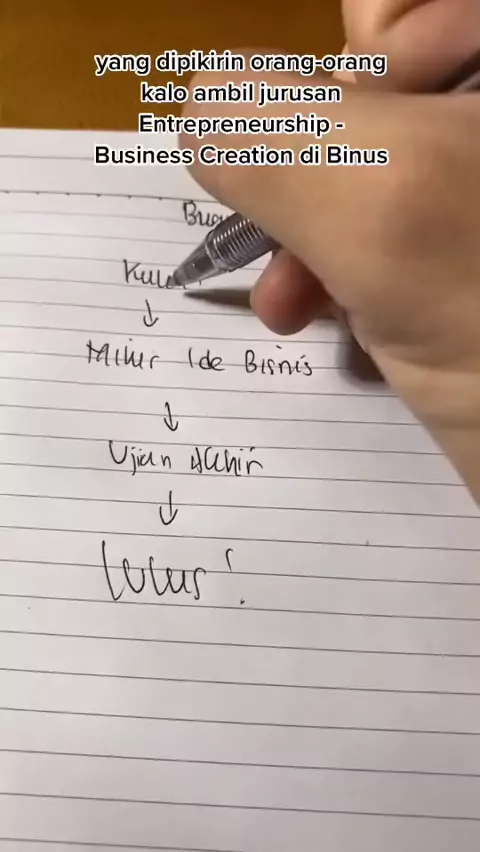 yang dipikirin orang-orang
kalo ambil jurusan
Entrepreneurship -
Business Creation di Binus
Mikir Ide Bisnis
Ujian Akhir
Lulus!